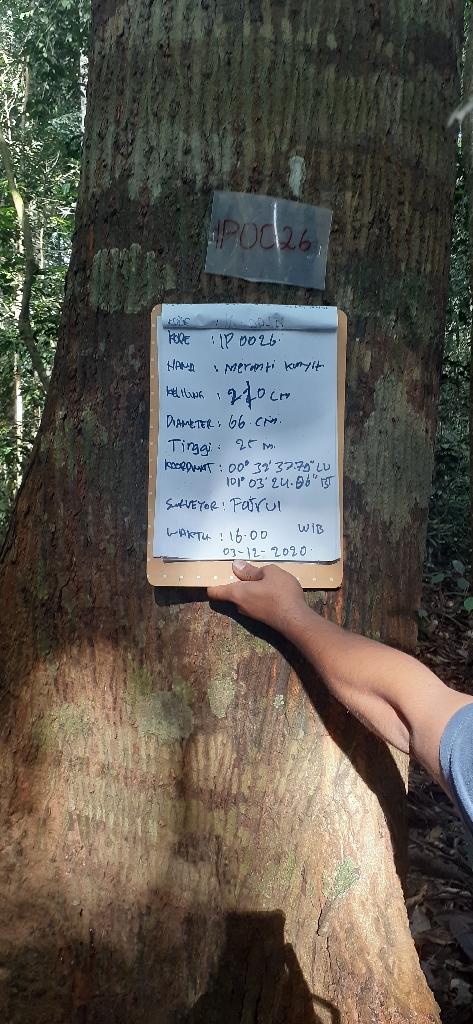 IP0026
KODE : IP 0026.
NAMA : Meranti Kunyit
KELILING : 210 cm
DIAMETER : 66 cm.
Tinggi : 25 m.
KOORDINAT : 00° 39' 37.79" LU
101° 03' 24.86" BT
SURVEYOR : Fajrul
WAKTU : 16.00 WIB
03-12-2020.